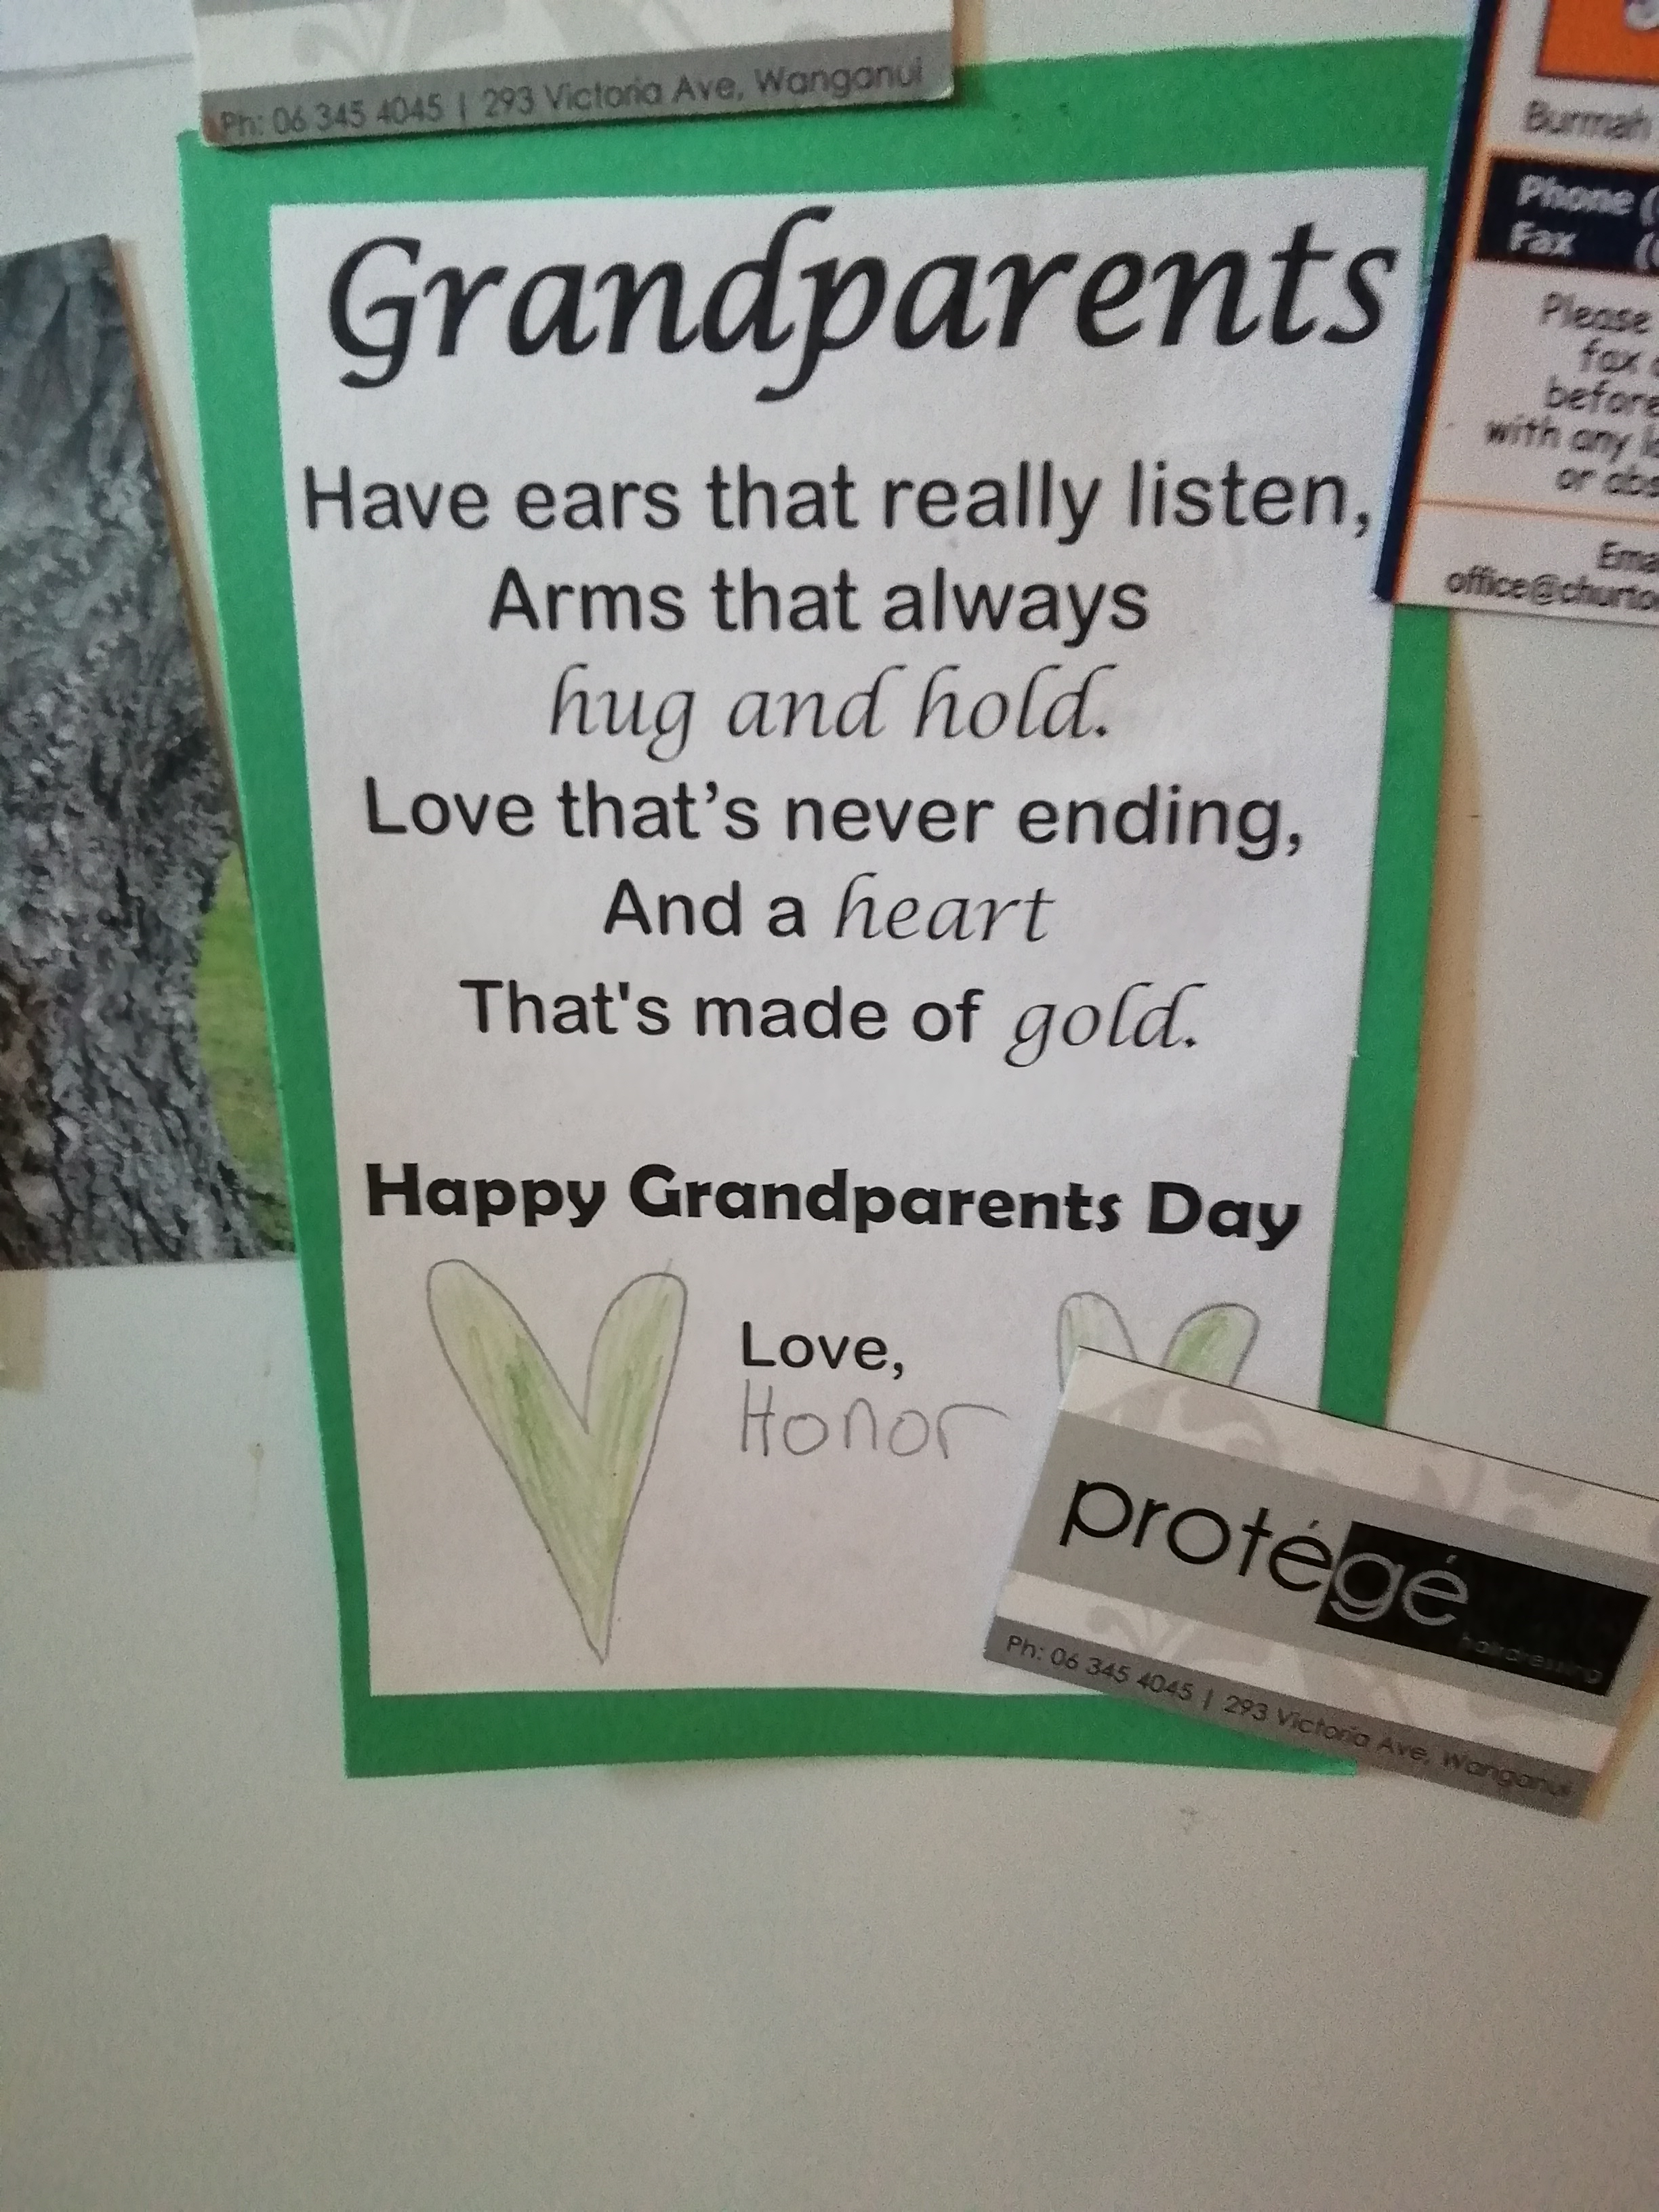 Ph: 06 345 4045 | 293 Victoria Ave, Wanganui
Grandparents
Have ears that really listen,
Arms that always
hug and hold.
Love that's never ending,
And a heart
That's made of gold.
Happy Grandparents Day
Love,
Honor
protégé
hairdressing
Ph: 06 345 4045 | 293 Victoria Ave, Wanganui
Burmah
Phone (
Fax (
Please
fax
before
with any
or abs
Ema
office@churto